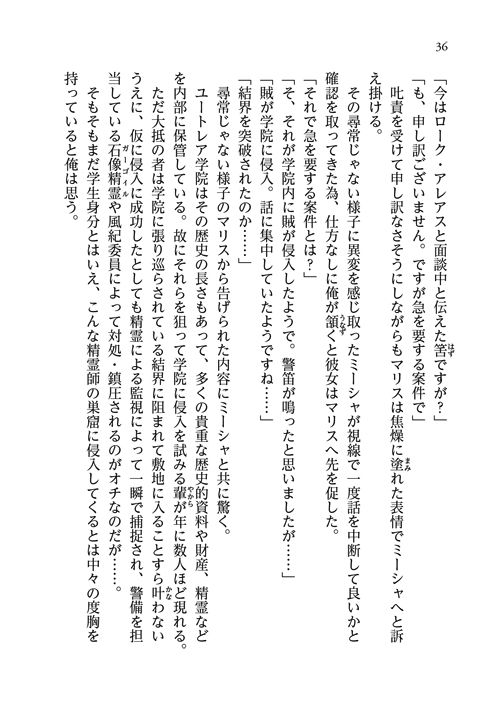 36
「今はローク・アレアスと面談中と伝えた筈ですが？」
「も、申し訳ございません。ですが急を要する案件で」
叱責を受けて申し訳なさそうにしながらもマリスは焦燥に塗れた表情でミーシャへと訴
え掛ける。
その尋常じゃない様子に異変を感じ取ったミーシャが視線で一度話を中断して良いかと
確認を取ってきた為、仕方なしに俺が頷くと彼女はマリスへ先を促した。
「それで急を要する案件とは？」
「そ、それが学院内に賊が侵入したようで。警笛が鳴ったと思いましたが……」
「賊が学院に侵入。話に集中していたようですね……」
「結界を突破されたのか……」
尋常じゃない様子のマリスから告げられた内容にミーシャと共に驚く。
ユートレア学院はその歴史の長さもあって、多くの貴重な歴史的資料や財産、精霊など
を内部に保管している。故にそれらを狙って学院に侵入を試みる輩が年に数人ほど現れる。
ただ大抵の者は学院に張り巡らされている結界に阻まれて敷地に入ることすら叶わない
うえに、仮に侵入に成功したとしても精霊による監視によって一瞬で捕捉され、警備を担
当している石像精霊や風紀委員によって対処・鎮圧されるのがオチなのだが……。
そもそもまだ学生身分とはいえ、こんな精霊師の巣窟に侵入してくるとは中々の度胸を
持っていると俺は思う。